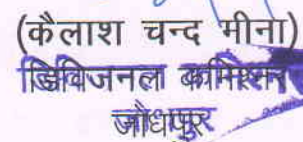 (कैलाश चन्द मीना)
डिविजनल कमिश्नर
जोधपुर